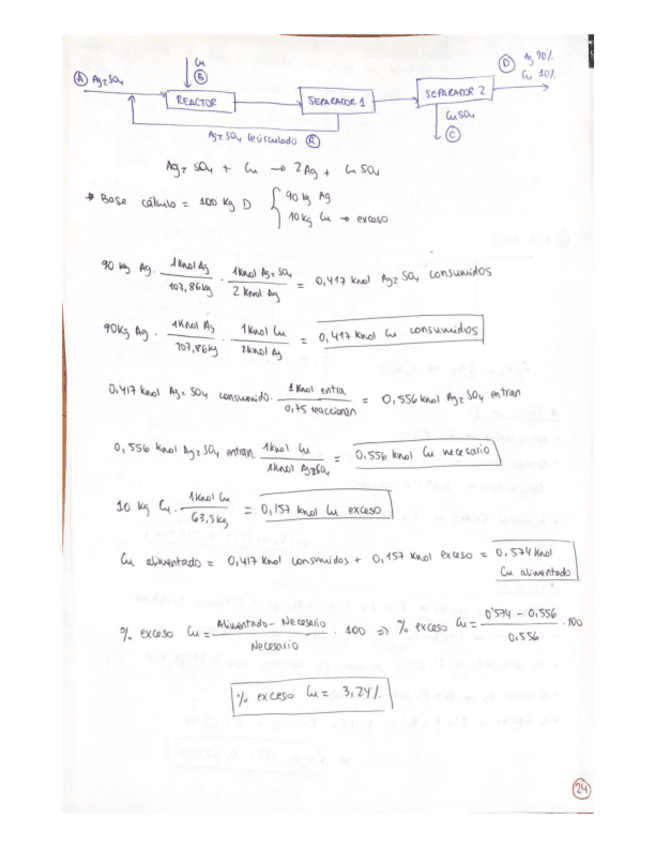 Cu
Ⓐ Ag₂SO₄
Ⓑ
REACTOR
SEPARADOR 1
SEPARADOR 2
Ⓓ Ag 90%
Cu 10%
CuSO₄
Ⓒ
Ag₂SO₄ recirculado Ⓡ
Ag₂SO₄ + Cu → 2Ag + CuSO₄
* Base cálculo = 100 kg D { 90 kg Ag
10 kg Cu → exceso
90 kg Ag · 1 Kmol Ag / 107,86 kg · 1 Kmol Ag₂SO₄ / 2 Kmol Ag = 0,417 Kmol Ag₂SO₄ consumidos
90 Kg Ag · 1 Kmol Ag / 107,86 kg · 1 Kmol Cu / 2 kmol Ag = 0,417 Kmol Cu consumidos
0,417 kmol Ag₂SO₄ consumido · 1 Kmol entra / 0,75 reaccionan = 0,556 kmol Ag₂SO₄ entran
0,556 kmol Ag₂SO₄ entran · 1 kmol Cu / 1 kmol Ag₂SO₄ = 0,556 kmol Cu necesario
10 kg Cu · 1 Kmol Cu / 63,5 kg = 0,157 kmol Cu exceso
Cu alimentado = 0,417 Kmol consumidos + 0,157 Kmol exceso = 0,574 Kmol
Cu alimentado
% exceso Cu = Alimentado - Necesario / Necesario · 100 ⇒ % exceso Cu = 0'574 - 0,556 / 0,556 · 100
% exceso Cu = 3,24%
24